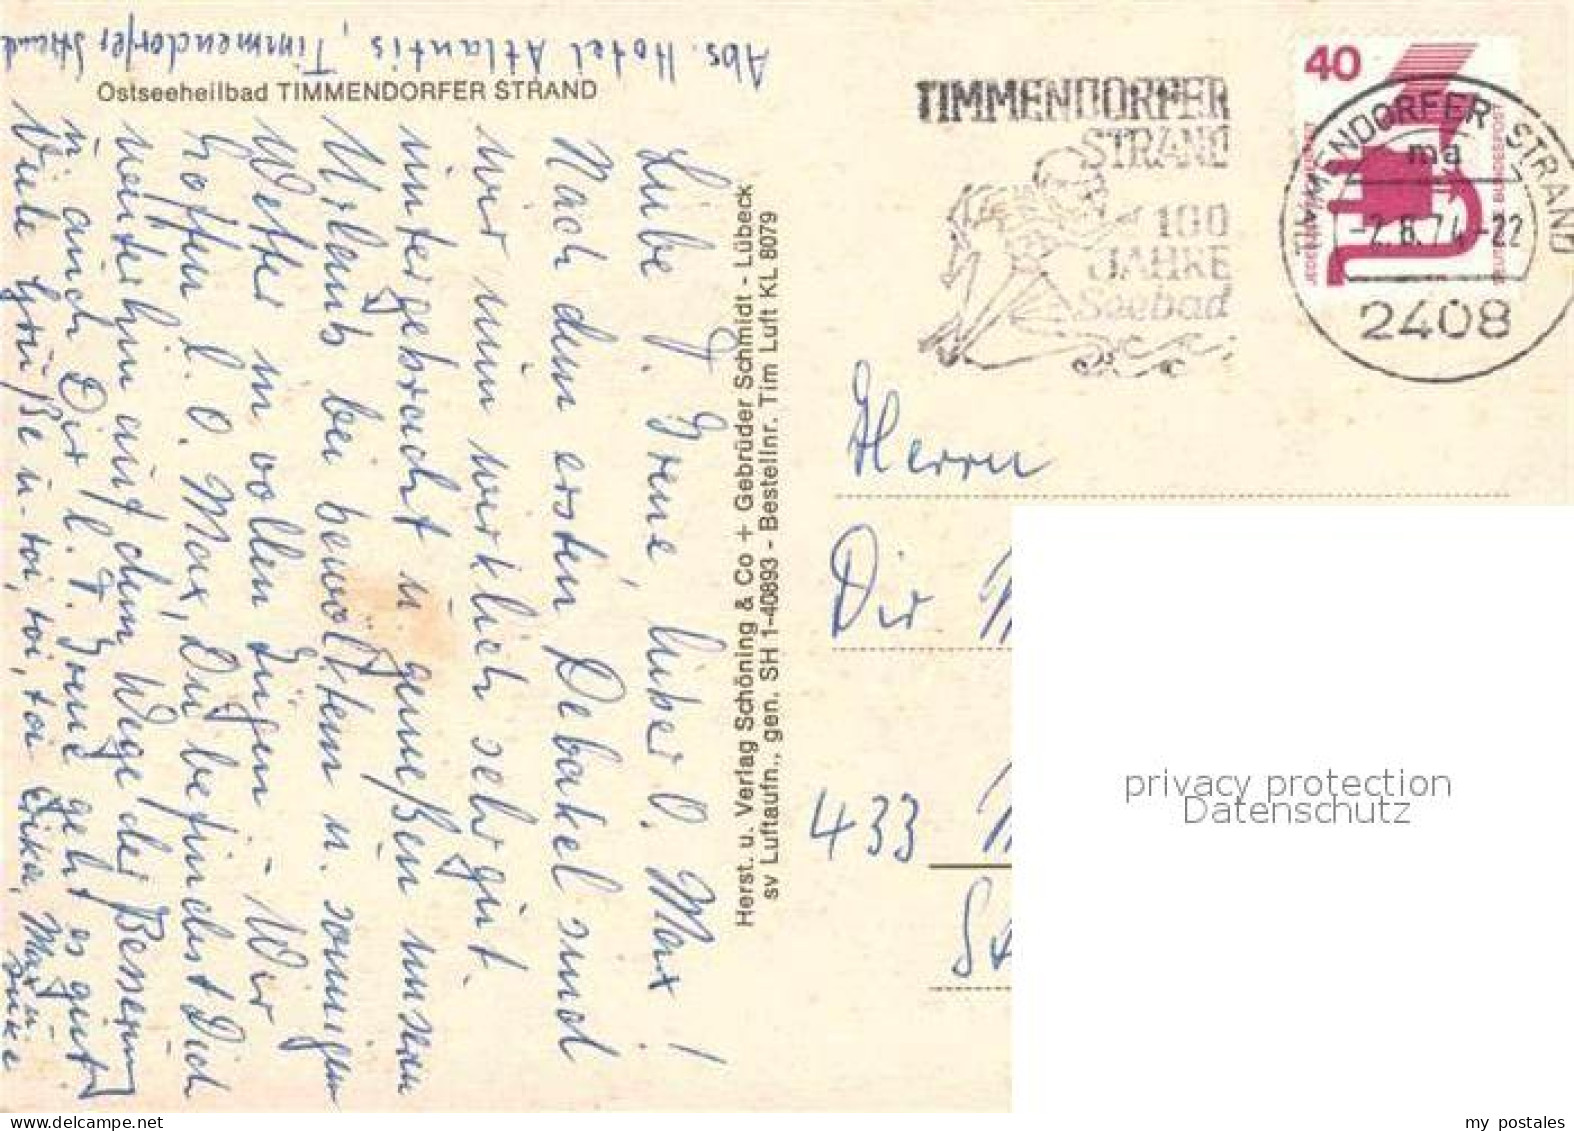 Abs. Hotel Atlantis, Timmendorfer Strand
Ostseeheilbad TIMMENDORFER STRAND
Liebe T. Grene, lieber O. Max!
Nach dem ersten Debakel sind
wir nun wirklich sehr gut
untergebracht u. genießen unseren
Urlaub bei bewölktem u. sonnigem
Wetter in vollen Zügen - Wir
hoffen l. O. Max, Du befindest Dich
weiterhin auf dem Wege der Besserung
u. auch Dir l. T. Grene geht es gut
Viele Grüße u. toi, toi, toi Eike, Max u.
Silke
Herst. u. Verlag Schöning & Co + Gebrüder Schmidt - Lübeck
sv Luftaufn., gen. SH 1-40893 - Bestellnr. Tim Luft KL 8079
TIMMENDORFER
STRAND
100
JAHRE
Seebad
40
JEDERZEIT SICHERHEIT
DEUTSCHE BUNDESPOST
TIMMENDORFER STRAND
ma
-2.6.74-22
2408
Herrn
Dir
433
privacy protection
Datenschutz
my postales